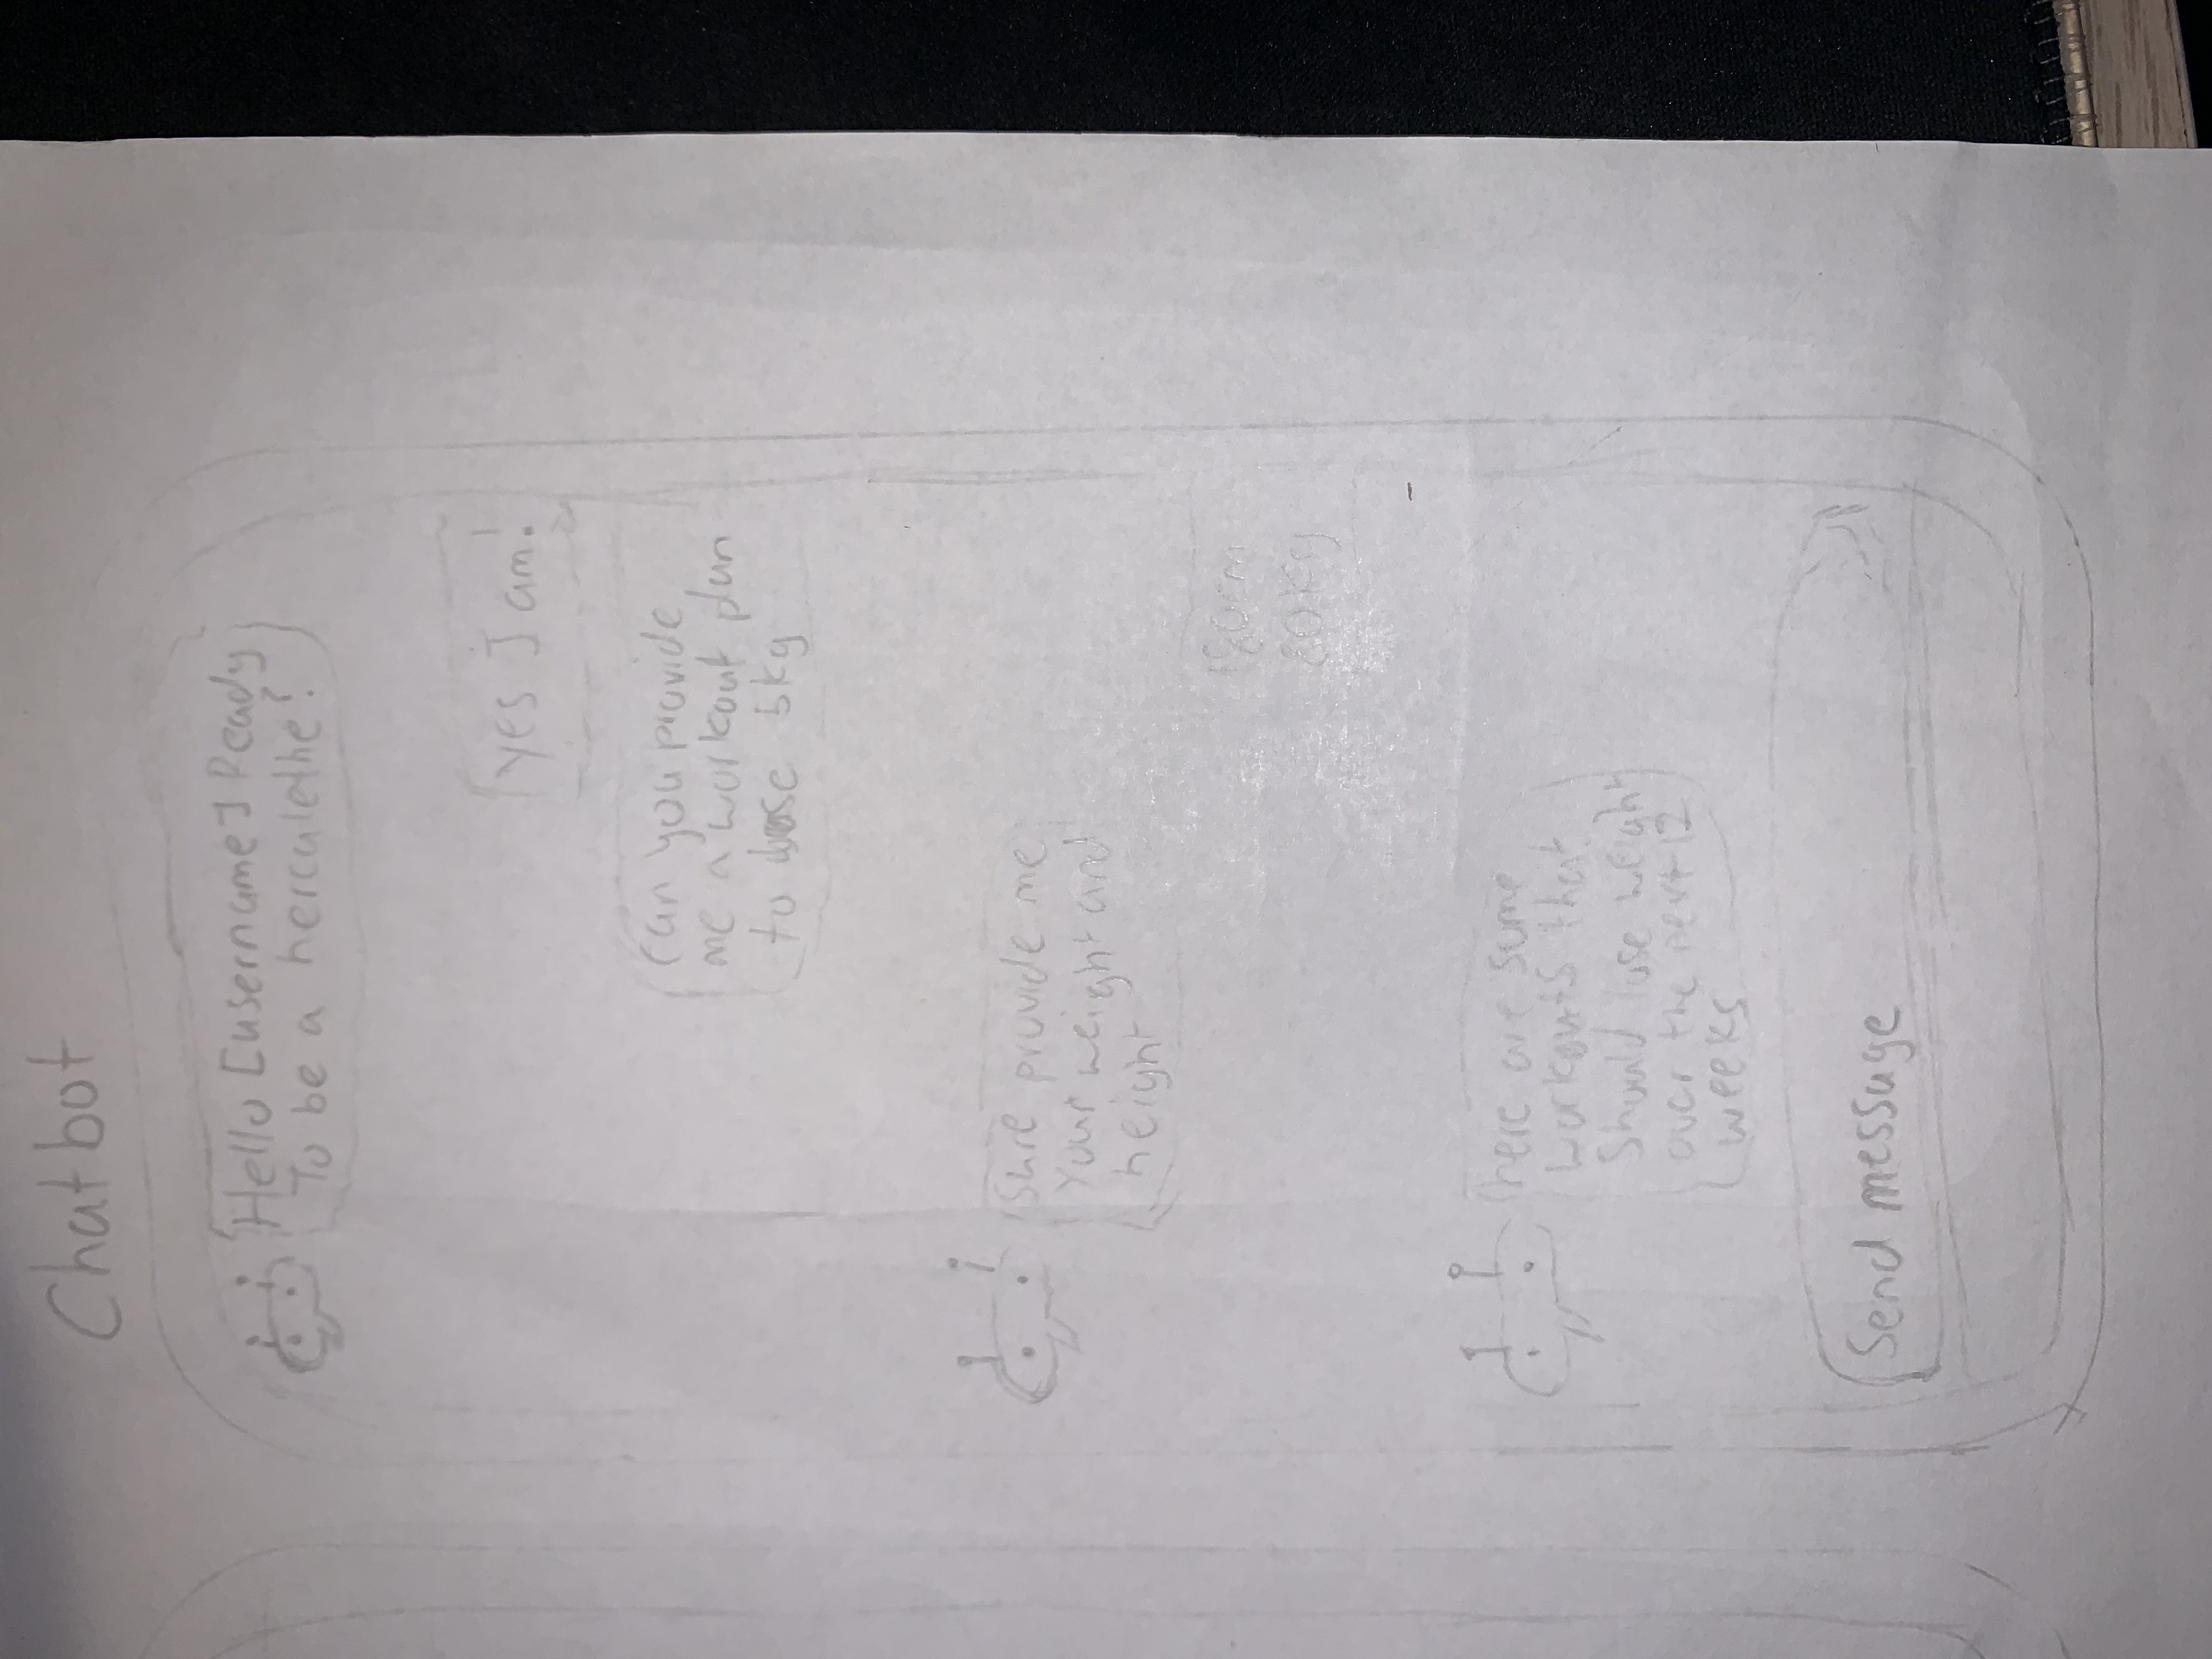 Chatbot
Hello [username] Ready
To be a herculethe?
yes I am!
can you provide
me a workout plan
to lose 5kg
Sure provide me
Your weight and
height
180cm
80kg
here are some
workouts that
Should lose weight
over the next 12
weeks
Send message